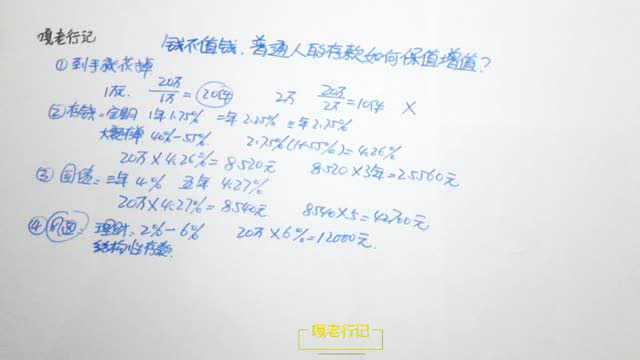 嘎老行记
钱不值钱,普通人的存款如何保值增值?
①到手就花掉
1万. 20万/1万=20年 2万 20万/2万=10年 ×
②存钱:定期 1年1.75% 二年2.25% 三年2.75%
大额存单 40%-55% 2.75%(1+55%)=4.26%
20万×4.26%=8.520元 8.520×3年=2.5560元
③国债:三年4% 五年4.27%
20万×4.27%=8540元 8540×5=42700元
④ 理财:2%-6% 20万×6%=12000元.
结构性存款:
嘎老行记